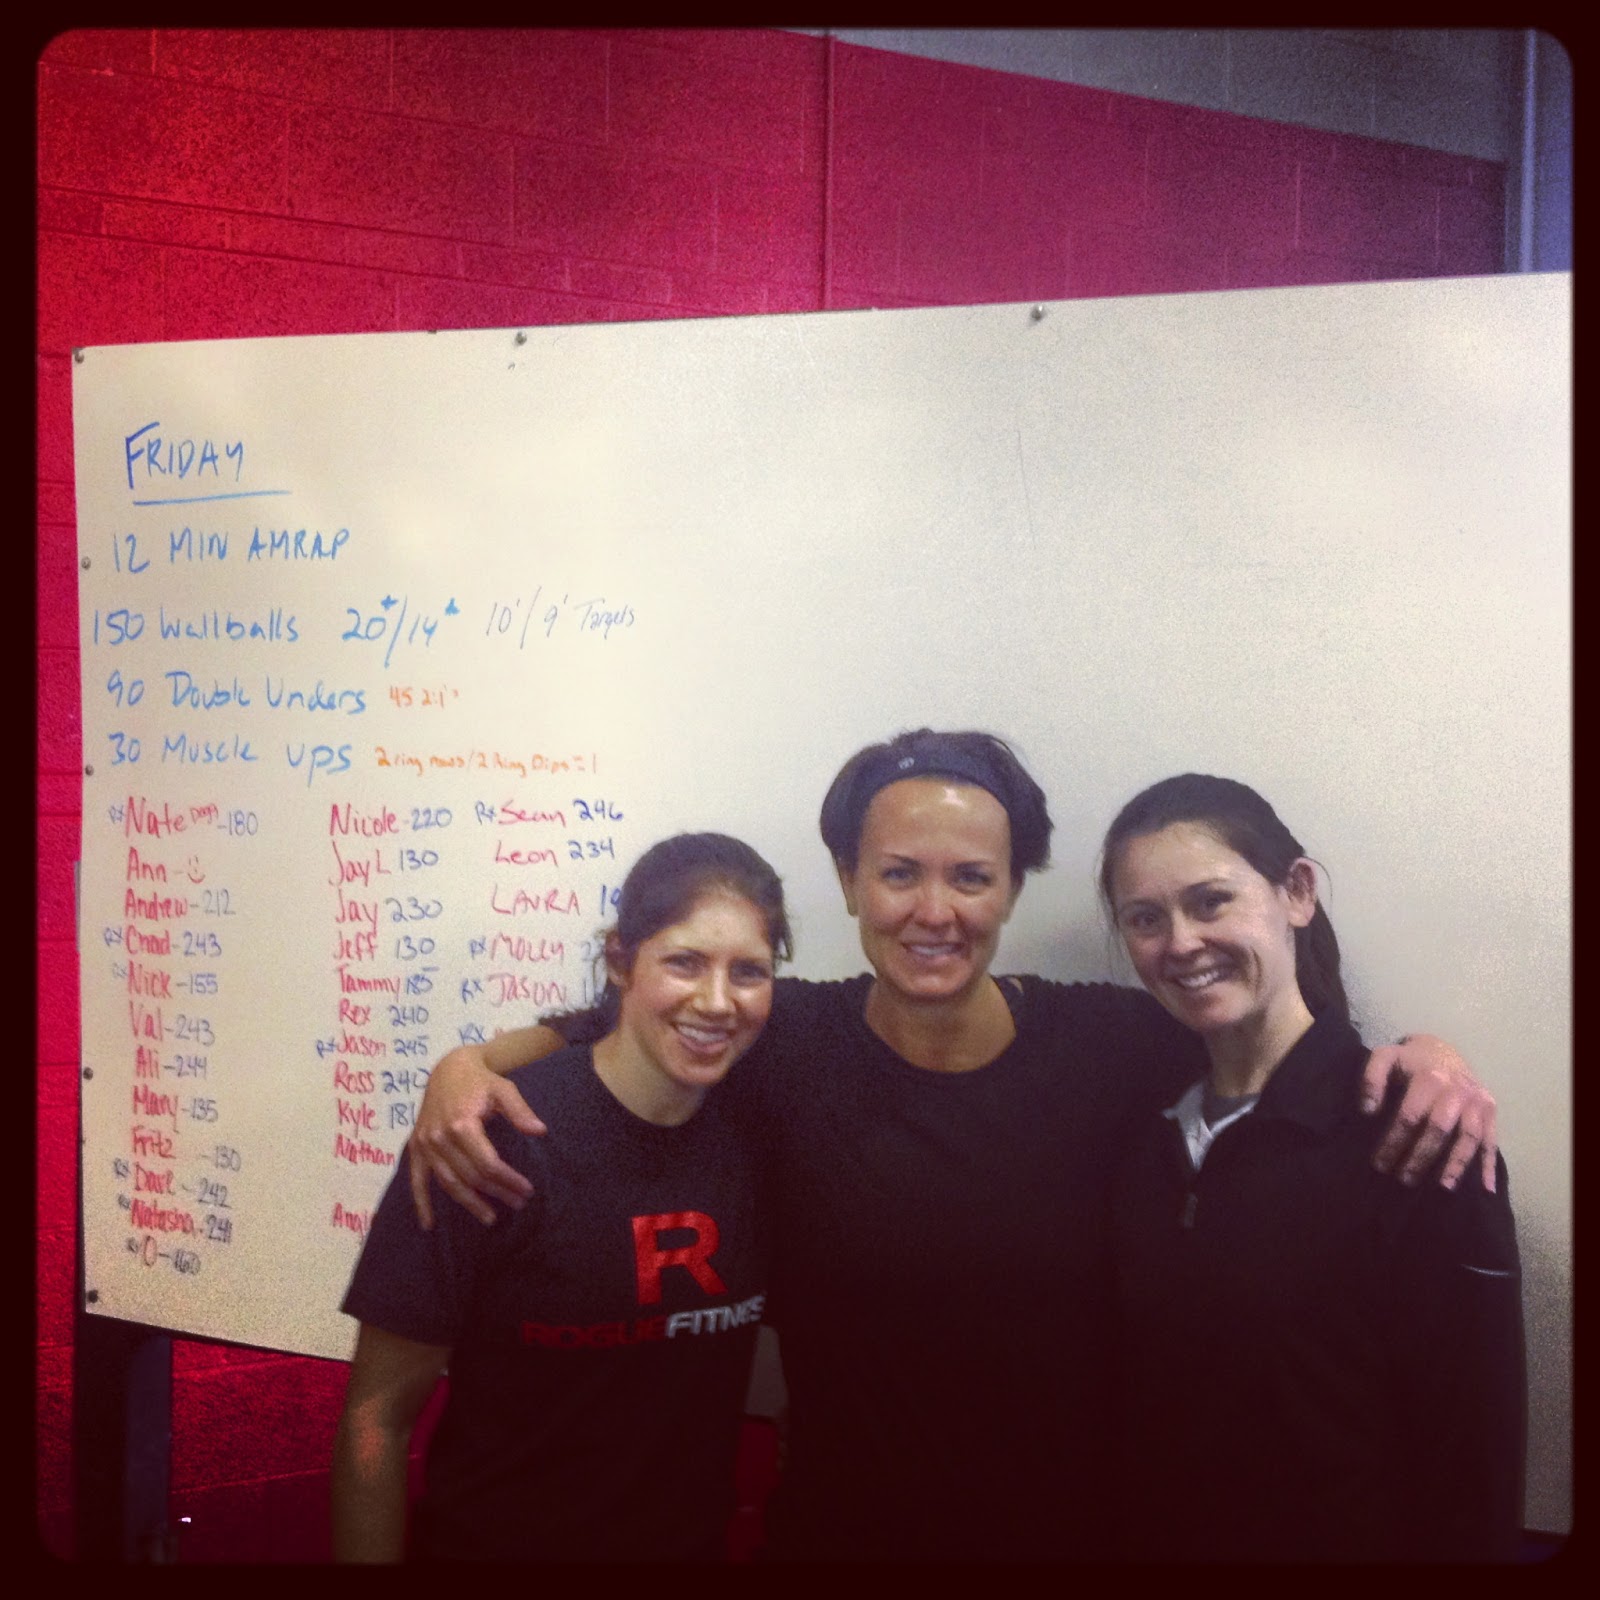 FRIDAY
12 MIN AMRAP
150 Wallballs 20#/14# 10'/9' Targets
90 Double Unders 45 2:1's
30 Muscle ups 2 ring rows/2 Ring Dips = 1
Rx Nate Dogg - 180
Ann - ☺
Andrew - 212
Rx Chad - 243
Rx Nick - 155
Val - 243
Ali - 244
Mary - 135
Fritz - 130
Rx Dave - 242
Rx Natasha - 241
Rx O - 160
Nicole - 220
Jay L 130
Jay 230
Jeff 130
Tammy 185
Rex 240
Rx Jason 245
Ross 240
Kyle
Nathan
Rx Sean 246
Leon 234
LAURA
Rx Molly
Rx JASON
Rx
R
ROGUE FITNESS